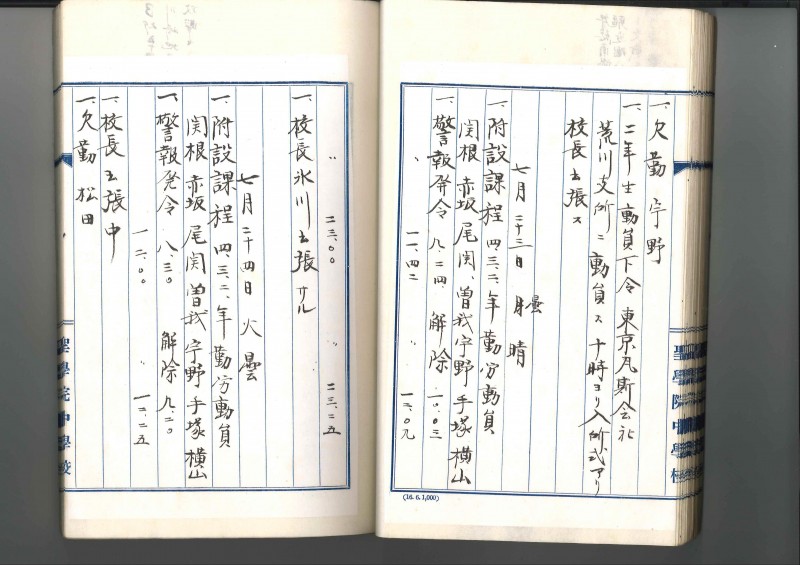 一、欠勤 宇野
一、二年生動員下令 東京瓦斯会社
荒川支所ニ動員ス 十時ヨリ入所式アリ
校長出張ス
七月二十三日 月 晴
曇
一、附設課程 四、三、二、年 勤労動員
関根 赤坂 尾関、曽我 宇野 手塚 横山
一、警報発令 九、二四、 解除 一〇、〇三
〃 一一、四二 〃 一二、〇九
(16. 6. 1,000)
聖學院中學校
〃 二三、〇〇 〃 二三、二五
一、校長氷川出張サル
七月二十四日 火 曇
一、附設課程 四、三、二、年 勤労動員
関根 赤坂 尾関 曽我 宇野 手塚 横山
一、警報発令 八、三〇 解除 九、二〇
〃 一二、〇〇 〃 一二、二五
一、校長出張中
一、欠勤 松田
聖學院中學校